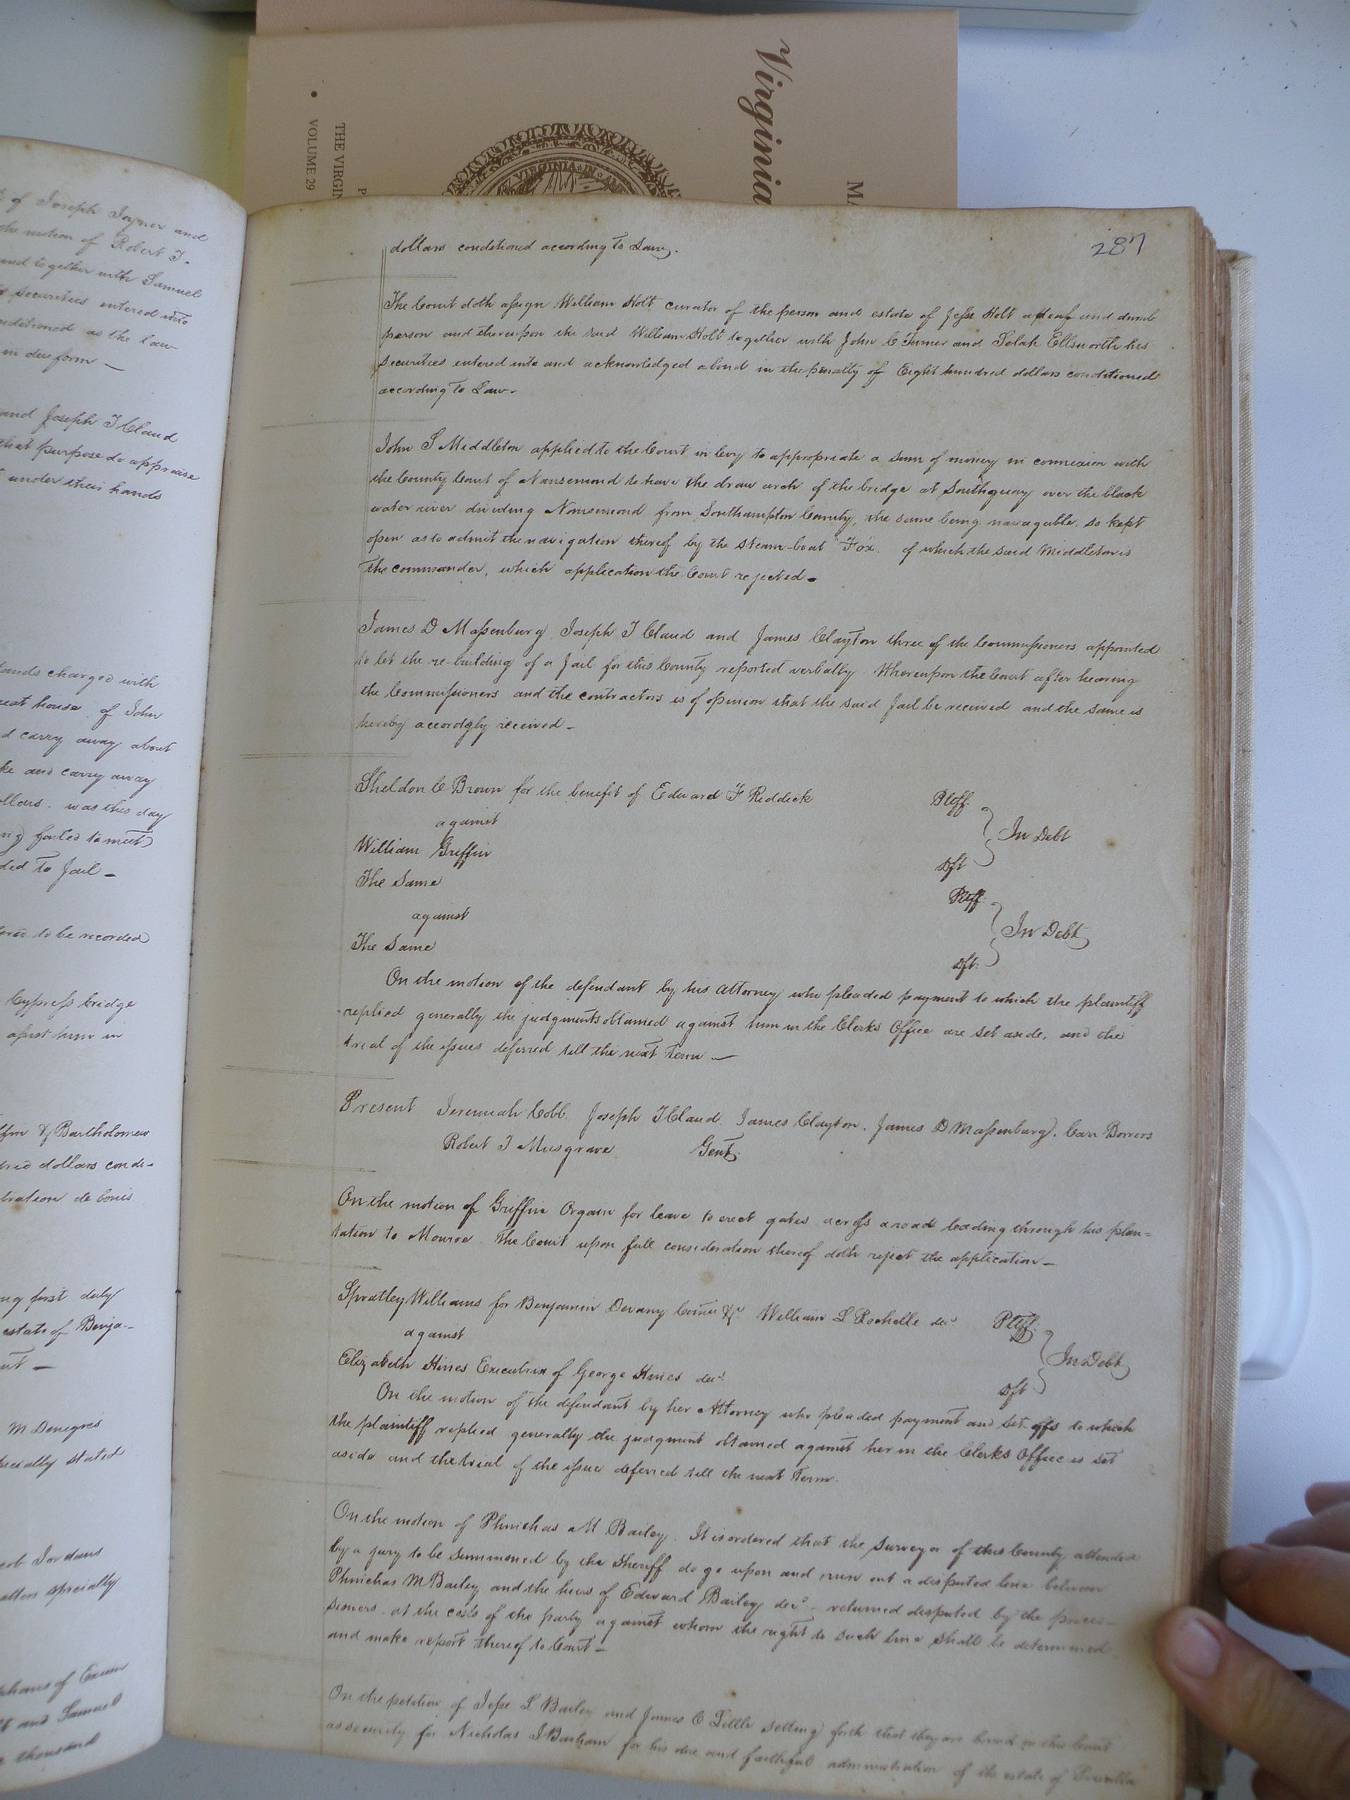 Virginia
THE VIRGIN
VOLUME 29
VIRGINIA
287
of Joseph Joyner and
the motion of Robert T.
and together with Samuel
securities entered into
conditioned as the law
in due form —
and Joseph T Claud
that purpose do appraise
under their hands
stands charged with
meat house of John
d carry away about
ke and carry away
ollars. was this day
failed to meet
ded to Jail —
to be recorded
Cypress bridge
apst him in
& Bartholomew
dollars condi-
tration de bonis
ng first duly
estate of Benja-
M Denegres
specially stated
Jordans
specially
orphans of
and Samuel
thousand
dollars conditioned according to Law.
The Court doth assign William Holt curator of the person and estate of Jesse Holt a deaf and dumb
person and thereupon the said William Holt together with John C Turner and Selah Ellsworth his
securities entered into and acknowledged a bond in the penalty of Eight hundred dollars conditioned
according to Law.
John S Middleton applied to the Court in levy to appropriate a sum of money in connexion with
the County Court of Nansemond to have the draw arch of the bridge at Southquay over the black
water river dividing Nansemond from Southampton County, the same being navagable, so kept
open as to admit the navigation thereof by the steam-boat Fox of which the said Middleton is
the commander, which application the Court rejected.
James D Massenburg Joseph T Claud and James Clayton three of the Commissioners appointed
to let the re-building of a Jail for this County reported verbally Whereupon the Court after hearing
the Commissioners and the contractors is of opinion that the said Jail be received and the same is
hereby accordgly received —
Sheldon C Brown for the benefit of Edward F Riddick Pltff
against In Debt
William Griffin Dft
The Same Pltff
against In Debt
The Same Dft.
On the motion of the defendant by his Attorney who pleaded payment to which the plaintiff
replied generally the judgments obtained against him in the Clerks Office are set aside, and the
trial of the issues deferred till the next Term —
Present Jeremiah Cobb Joseph T Claud James Clayton, James D Massenburg, Carr Bowers
Robert T Musgrave Gent.
On the motion of Griffin Orgain for leave to erect gates across a road leading through his plan-
tation to Monroe. The Court upon full consideration thereof doth reject the application —
Spratley Williams for Benjamin Devany &c William L Rochelle decd Pltff.
against In Debt
Elizabeth Hines Executrix of George Hines decd Dft
On the motion of the defendant by her Attorney who pleaded payment and set offs to which
the plaintiff replied generally the judgment obtained against her in the Clerks Office is set
aside and the trial of the issue deferred till the next Term.
On the motion of Phinehas M. Bailey. It is ordered that the Surveyor of this County attended
by a jury to be summoned by the Sheriff do go upon and run out a disputed line between
Phinehas M Bailey and the heirs of Edward Bailey decd returned disputed by the proces-
sioners at the costs of the party against whom the right to such line shall be determined
and make report thereof to Court —
On the petition of Jesse L Bailey and James C Little setting forth that they are bound in this Court
as security for Nicholas J Barham for his due and faithful administration of the estate of